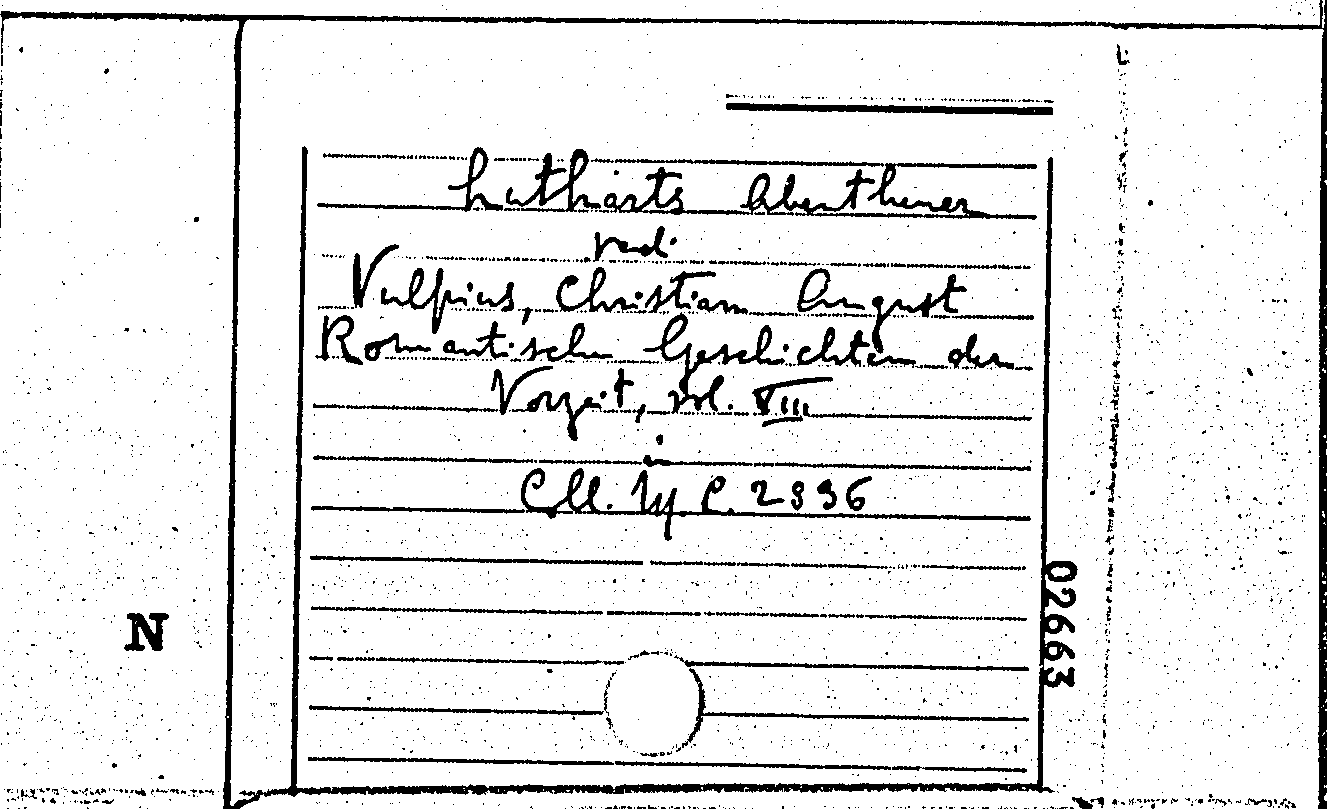 Luthards Abentheuer
vedi
Vulpius, Christian August
Romantische Geschichten der
Vorzeit, vol. VIII
in
Coll. 
N
02663